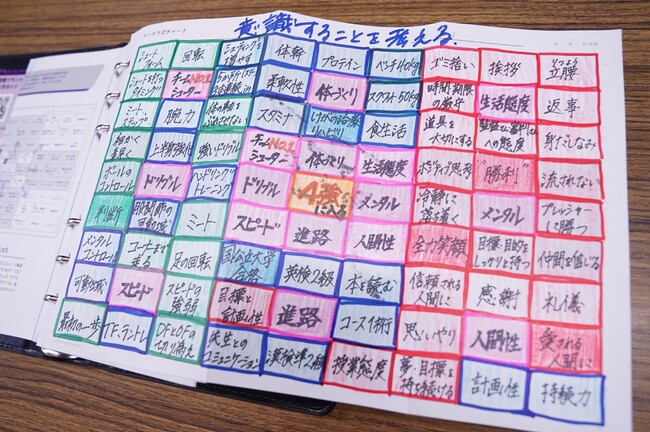 マンダラ式チャート
意識することを考える。
シュートフォーム 回転 体幹 プロテイン ベンチ40kg ゴミ拾い 挨拶 立腰
チームNO.1シューター 柔軟性 体づくり スクワット50kg 時間・期限の厳守 生活態度 返事
腕力 スタミナ 食生活 道具を大切にする 身だしなみ
細かく素早く 上半身強化 強いドリブル チームNO.1シューター 体づくり 生活態度 ポジティブ思考 "勝利" 流されない
ボールのコントロール ドリブル ハンドリングトレーニング ドリブル A級に入る メンタル 冷静に落ち着く メンタル プレッシャーに勝つ
判断 ミート スピード 進路 人間性 全力笑顔 目標・目的をしっかりと持つ 仲間を信じる
メンタルコントロール コートまで走る 足の回転 国公立大学合格 英検2級 本を読む 信頼される人間に 感謝 礼儀
可動域 スピード スピードの強弱 目標と計画性 進路 コース移行 思いやり 人間性 愛される人間に
最初の一歩 OFとDFの切り替え 先生とのコミュニケーション 漢検準2級 授業態度 夢・目標を持ち続ける 計画性 持続力